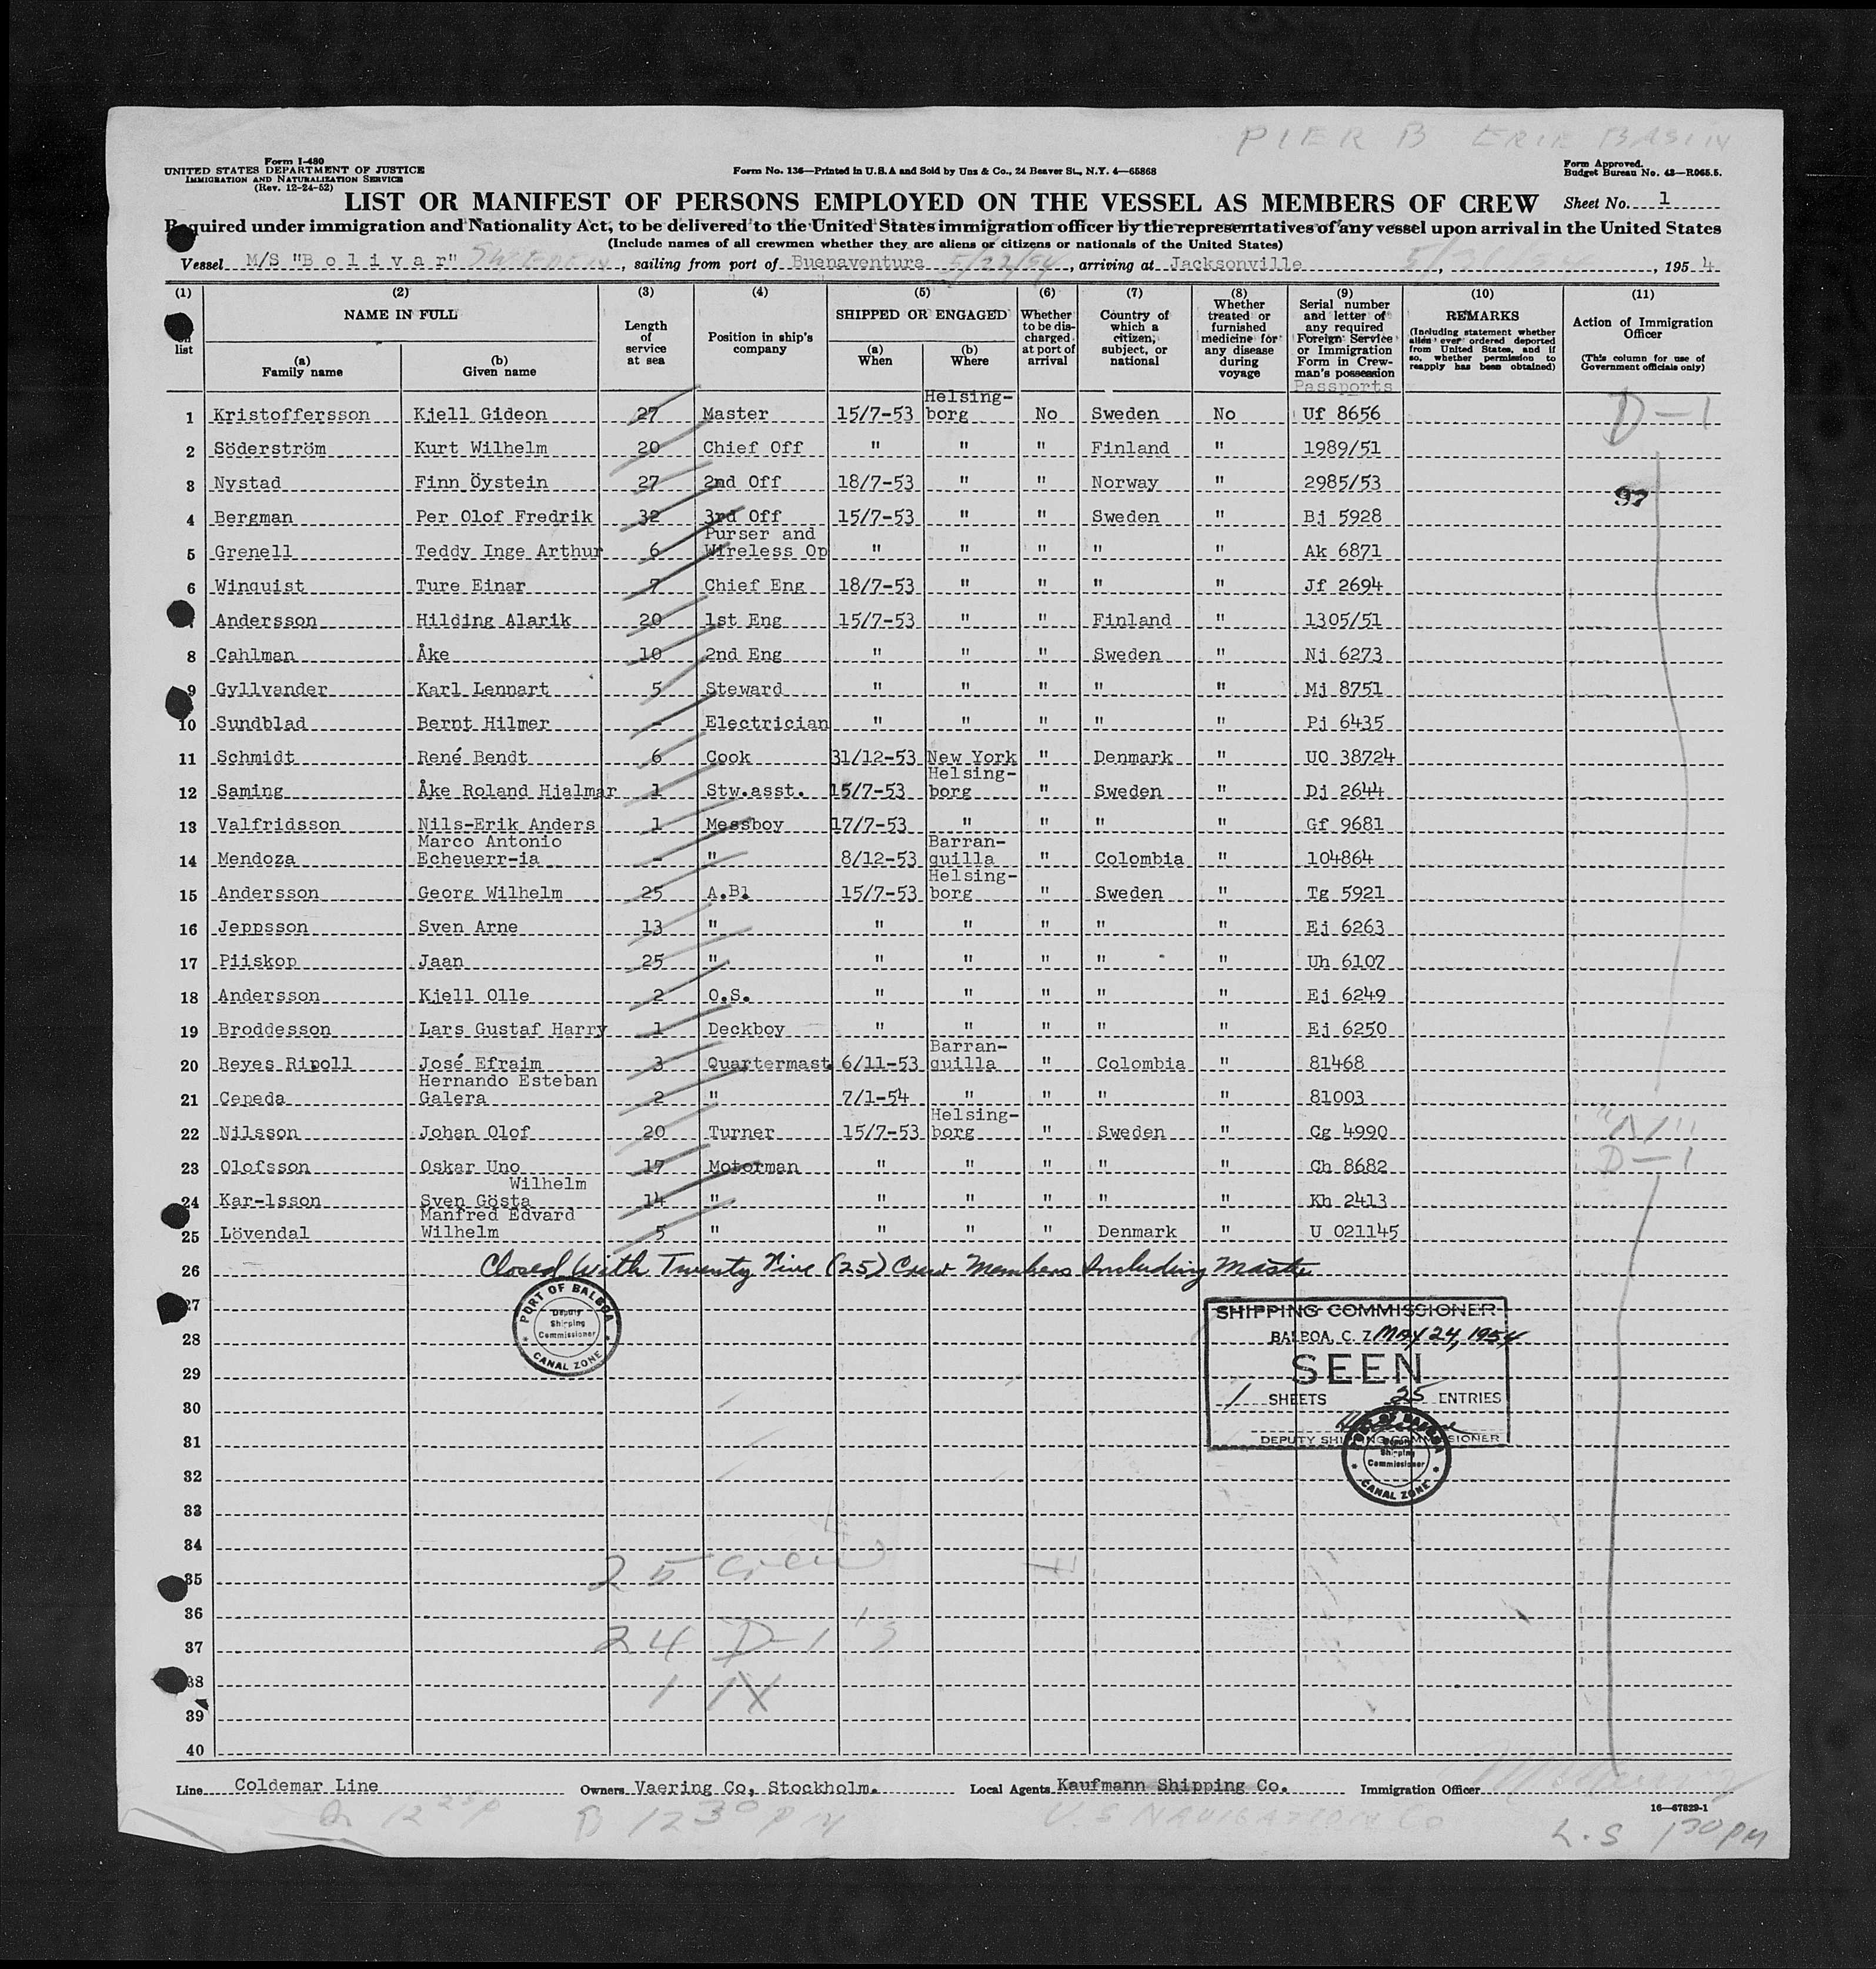 PIER B ERIE BASIN
Form I-480
UNITED STATES DEPARTMENT OF JUSTICE
IMMIGRATION AND NATURALIZATION SERVICE
(Rev. 12-24-52)
Form No. 136—Printed in U.S.A and Sold by Unz & Co., 24 Beaver St., N.Y. 4—65868
Form Approved.
Budget Bureau No. 43—R065.5.
LIST OR MANIFEST OF PERSONS EMPLOYED ON THE VESSEL AS MEMBERS OF CREW Sheet No. 1
Required under immigration and Nationality Act, to be delivered to the United States immigration officer by the representatives of any vessel upon arrival in the United States
(Include names of all crewmen whether they are aliens or citizens or nationals of the United States)
Vessel M/S "B o l i v a r" SWEDEN, sailing from port of Buenaventura 5/22/54, arriving at Jacksonville, 195 4
(1) (2) (3) (4) (5) (6) (7) (8) (9) (10) (11)
on list
NAME IN FULL
(a) Family name
(b) Given name
Length of service at sea
Position in ship's company
SHIPPED OR ENGAGED
(a) When
(b) Where
Whether to be discharged at port of arrival
Country of which a citizen, subject, or national
Whether treated or furnished medicine for any disease during voyage
Serial number and letter of any required Foreign Service or Immigration Form in Crewman's possession
Passports
REMARKS
(Including statement whether alien ever ordered deported from United States, and if so, whether permission to reapply has been obtained)
Action of Immigration Officer
(This column for use of Government officials only)
1 Kristoffersson Kjell Gideon 27 Master 15/7-53 Helsing-borg No Sweden No Uf 8656 D-1
2 Söderström Kurt Wilhelm 20 Chief Off " " " Finland " 1989/51
3 Nystad Finn Öystein 27 2nd Off 18/7-53 " " Norway " 2985/53 97
4 Bergman Per Olof Fredrik 32 3rd Off 15/7-53 " " Sweden " Bj 5928
5 Grenell Teddy Inge Arthur 6 Purser and Wireless Op " " " " " Ak 6871
6 Winquist Ture Einar 7 Chief Eng 18/7-53 " " " " Jf 2694
Andersson Hilding Alarik 20 1st Eng 15/7-53 " " Finland " 1305/51
8 Cahlman Åke 10 2nd Eng " " " Sweden " Nj 6273
9 Gyllvander Karl Lennart 5 Steward " " " " " Mj 8751
10 Sundblad Bernt Hilmer - Electrician " " " " " Pj 6435
11 Schmidt René Bendt 6 Cook 31/12-53 New York " Denmark " UO 38724
12 Saming Åke Roland Hjalmar 1 Stw.asst. 15/7-53 Helsing-borg " Sweden " Dj 2644
13 Valfridsson Nils-Erik Anders 1 Messboy 17/7-53 " " " " Gf 9681
14 Mendoza Marco Antonio Echeuerr-ia - " 8/12-53 Barran-quilla " Colombia " 104864
15 Andersson Georg Wilhelm 25 A.Bl 15/7-53 Helsing-borg " Sweden " Tg 5921
16 Jeppsson Sven Arne 13 " " " " " " Ej 6263
17 Piiskop Jaan 25 " " " " " " Uh 6107
18 Andersson Kjell Olle 2 O.S. " " " " " Ej 6249
19 Broddesson Lars Gustaf Harry 1 Deckboy " " " " " Ej 6250
20 Reyes Ripoll José Efraim 3 Quartermast. 6/11-53 Barran-quilla " Colombia " 81468
21 Cepeda Hernando Esteban Galera 2 " 7/1-54 " " " " 81003
22 Nilsson Johan Olof 20 Turner 15/7-53 Helsing-borg " Sweden " Cg 4990
23 Olofsson Oskar Uno 17 Motorman " " " " " Ch 8682 D-1
24 Kar-lsson Wilhelm Sven Gösta 14 " " " " " " Kh 2413
25 Lövendal Manfred Edvard Wilhelm 5 " " " " Denmark " U 021145
26 Closed With Twenty Five (25) Crew Members Including Master
27
28
29
30
31
32
33
34
35
36
37
38
39
40
PORT OF BALBOA
Deputy Shipping Commissioner
CANAL ZONE
SHIPPING COMMISSIONER
BALBOA, C. Z. May 24, 1954
SEEN
1 SHEETS 25 ENTRIES
DEPUTY SHIPPING COMMISSIONER
PORT OF BALBOA
Deputy Shipping Commissioner
CANAL ZONE
25 Crew
24 D-1's
Line Coldemar Line Owners Vaering Co, Stockholm. Local Agents Kaufmann Shipping Co. Immigration Officer
16—67829-1
B 12 30 PM U.S NAVIGATION CO L.S 1 30 PM